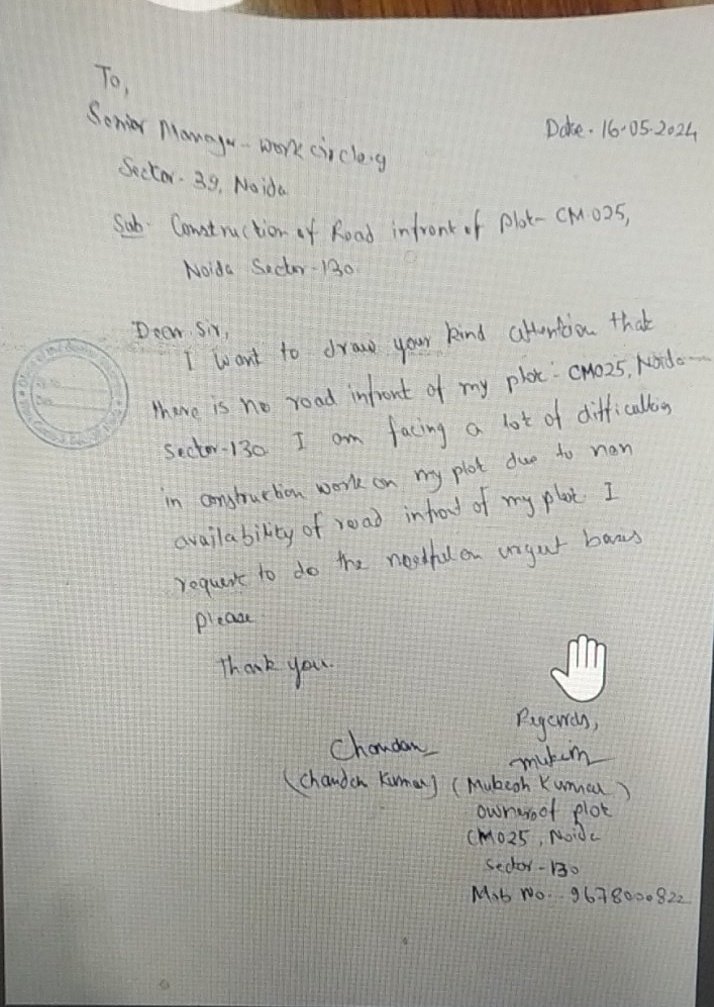 To,
Senior Manager - work circle-9
Date. 16-05-2024
Sector-39, Noida
Sub. Construction of Road infront of Plot- CM-025,
Noida Sector-130
Dear Sir,
I want to draw your kind attention that
there is no road infront of my plot - CM025, Noida
Sector-130 I am facing a lot of difficulties
in construction work on my plot due to non
availability of road infront of my plot. I
request to do the needful on urgent basis
please.
Thank you.
Regards,
Chandan
mukesh
(Chandan Kumar) (Mukesh Kumar)
owner of plot
CM025, Noida
Sector-130
Mob No. - 9678000822